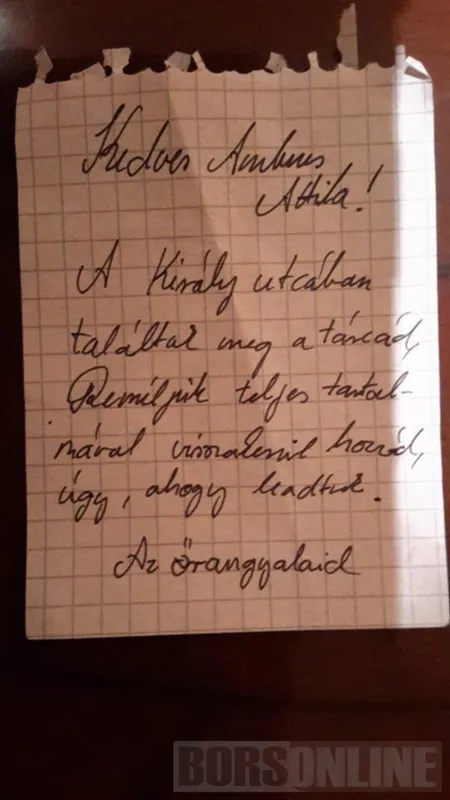 Kedves Ambrus
Attila!
A Király utcában
találtuk meg a tárcád,
Reméljük teljes tartal-
mával visszakerül hozzád,
úgy, ahogy leadtuk.
Az őrangyalaid
BORSONLINE